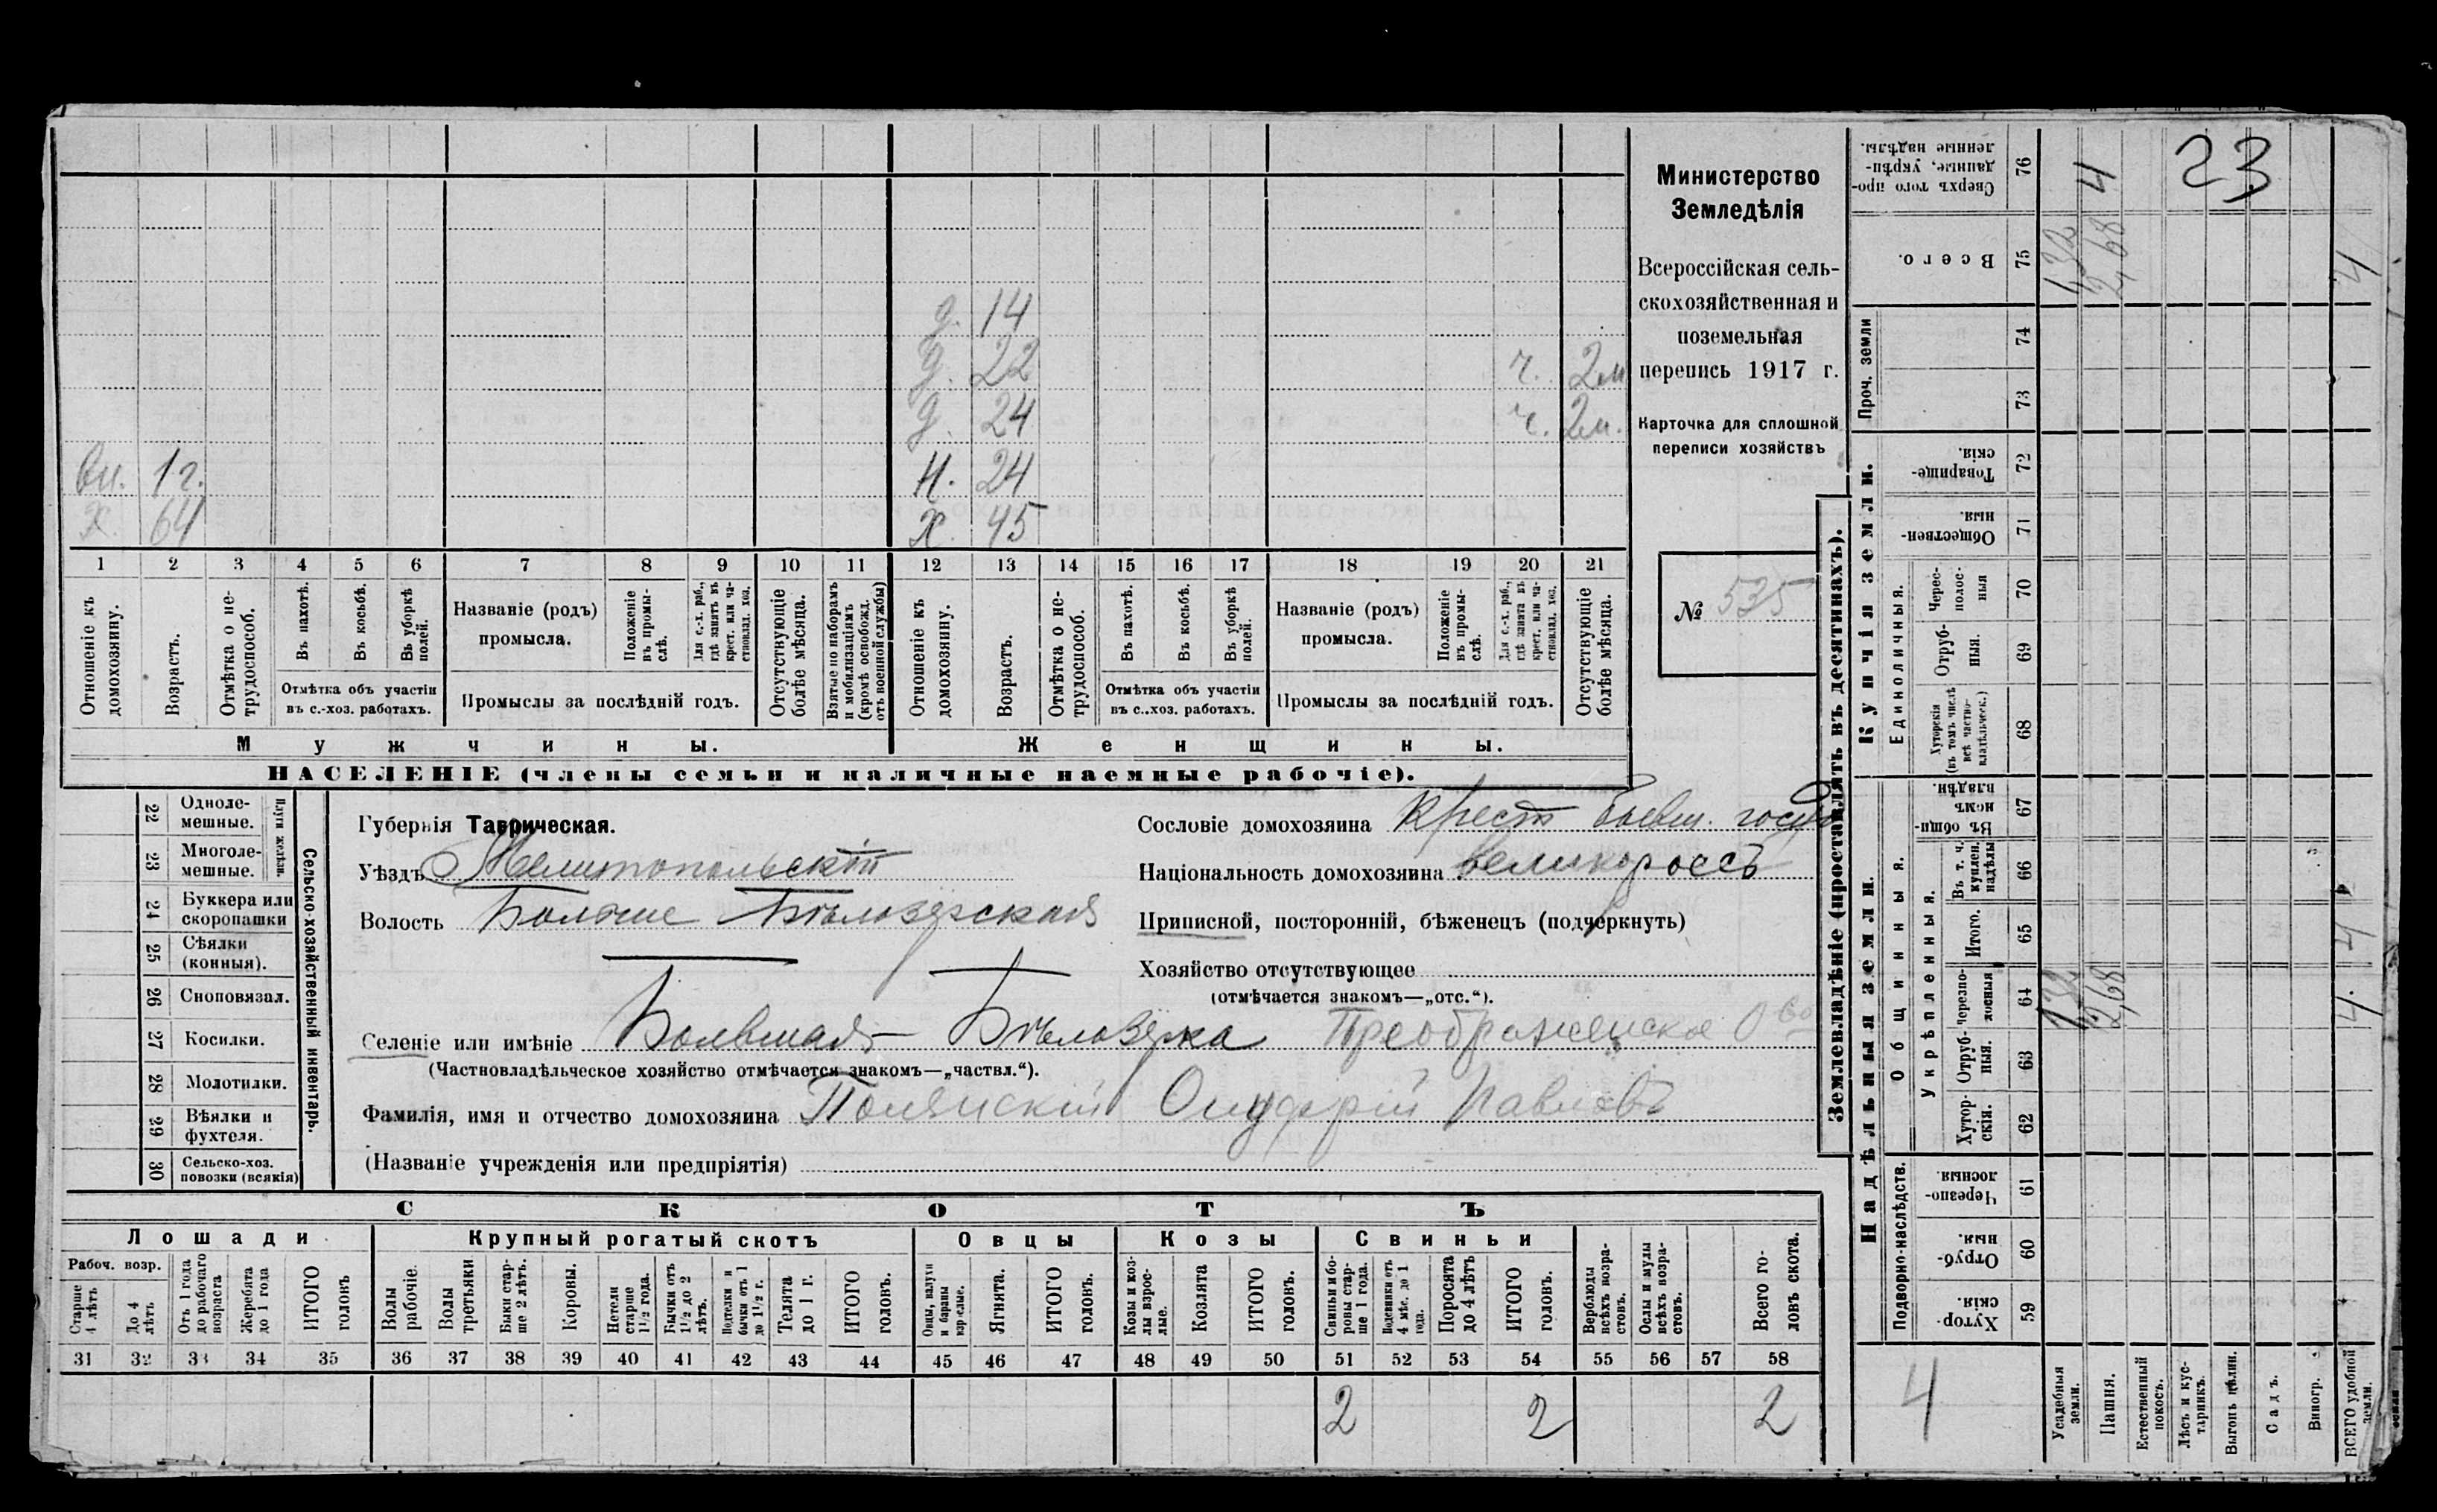 д. 14
д. 22 ч. 2м
д. 24 ч. 2м.
вн. 1 г. н. 24
х. 64 х. 45
1 2 3 4 5 6 7 8 9 10 11 12 13 14 15 16 17 18 19 20 21
Отношеніе къ домохозяину.
Возрастъ.
Отмѣтка о не-
трудоспособ.
Въ пахотѣ.
Въ косьбѣ.
Въ уборкѣ полей.
Отмѣтка объ участіи
въ с.-хоз. работахъ.
Названіе (родъ)
промысла.
Положеніе въ промы-
слѣ.
Для с.-х. раб., гдѣ занятъ въ крест. или ча-
стновлад. хоз.
Промыслы за послѣдній годъ.
Отсутствующіе болѣе мѣсяца.
Взятые по наборамъ и мобилизаціямъ (кромѣ освобожд. отъ военной службы)
Отношеніе къ домохозяину.
Возрастъ.
Отмѣтка о не-
трудоспособ.
Въ пахотѣ.
Въ косьбѣ.
Въ уборкѣ полей.
Отмѣтка объ участіи
въ с..хоз. работахъ.
Названіе (родъ)
промысла.
Положеніе въ промы-
слѣ.
Для с.-х. раб., гдѣ занята въ крест. или ча-
стновлад. хоз.
Промыслы за послѣдній годъ.
Отсутствующіе болѣе мѣсяца.
Мужчины. Женщины.
НАСЕЛЕНІЕ (члены семьи и наличные наемные рабочіе).
Министерство
Земледѣлія
Всероссійская сель-
скохозяйственная и
поземельная
перепись 1917 г.
Карточка для сплошной
переписи хозяйствъ
№ 535
22 Одноле-
мешные.
23 Многоле-
мешные.
Плуги желѣзн.
24 Буккера или
скоропашки
25 Сѣялки
(конныя).
26 Сноповязал.
27 Косилки.
28 Молотилки.
29 Вѣялки и
фухтеля.
30 Сельско-хоз.
повозки (всякія)
Сельско-хозяйственный инвентарь.
Губернія Таврическая.
Уѣздъ Мелитопольскій
Волость Больше Бѣлозерская
Селеніе или имѣніе Большая-Бѣлозерка Преображенское О-во
(Частновладѣльческое хозяйство отмѣчается знакомъ—„частвл.“).
Фамилія, имя и отчество домохозяина Полянскій Онуфрій Павловъ
(Названіе учрежденія или предпріятія)
Сословіе домохозяина Крест бывш. госуд
Національность домохозяина великороссъ
Приписной, посторонній, бѣженецъ (подчеркнуть)
Хозяйство отсутствующее
(отмѣчается знакомъ—„отс.“).
СКОТЪ
Лошади Крупный рогатый скотъ Овцы Козы Свиньи
Рабоч. возр.
Старше 4 лѣтъ
До 4 лѣтъ
Отъ 1 года до рабочаго возраста
Жеребята до 1 года
ИТОГО головъ
Волы рабочіе.
Волы третьяки
Быки стар-
ше 2 лѣтъ.
Коровы.
Нетели старше 1½ года.
Бычки отъ 1½ до 2 лѣтъ.
Подтелки и бычки отъ 1 до 1½ г.
Телята до 1 г.
ИТОГО головъ.
Овцы, валухи и бараны взрослые.
Ягнята.
ИТОГО головъ.
Козы и коз-
лы взрос-
лые.
Козлята
ИТОГО головъ.
Свиньи и бо-
ровы стар-
ше 1 года.
Подсвинки отъ 4 мѣс. до 1 года.
Поросята до 4 лѣтъ
ИТОГО головъ.
Верблюды всѣхъ возра-
стовъ.
Ослы и мулы всѣхъ возра-
стовъ.
Всего го-
ловъ скота.
31 32 33 34 35 36 37 38 39 40 41 42 43 44 45 46 47 48 49 50 51 52 53 54 55 56 57 58
2 2 2
Землевладѣніе (проставлять въ десятинахъ).
Купчія земли.
Надѣльныя земли.
Сверхъ того про-
данные, укрѣп-
ленные надѣлы. 76
4
23
Всего. 75
1,32
2,68
4
Проч. земли
74
73
Товарище-
скія. 72
Обществен-
ныя. 71
Единоличныя.
Черес-
полос-
ныя 70
Отруб-
ныя. 69
Хуторскія
(въ томъ числѣ
всѣ частно-
владѣльческ.) 68
Общинныя.
Въ общи-
номъ
владѣн. 67
Укрѣпленныя.
Въ т. ч.
куплен.
надѣлы 66
Итого. 65
4
Черезпо-
лосныя 64
1,32
2,68
4.
Отруб-
ныя. 63
Хутор-
скія. 62
Подворно-наслѣдств.
Черезпо-
лосныя. 61
Отруб-
ныя. 60
Хутор-
скія. 59
4
Усадебныя земли.
Пашня.
Естественный покосъ.
Лѣсъ и кус-
тарникъ.
Выгонъ цѣлин.
Садъ.
Виногр.
ВСЕГО удобной земли.